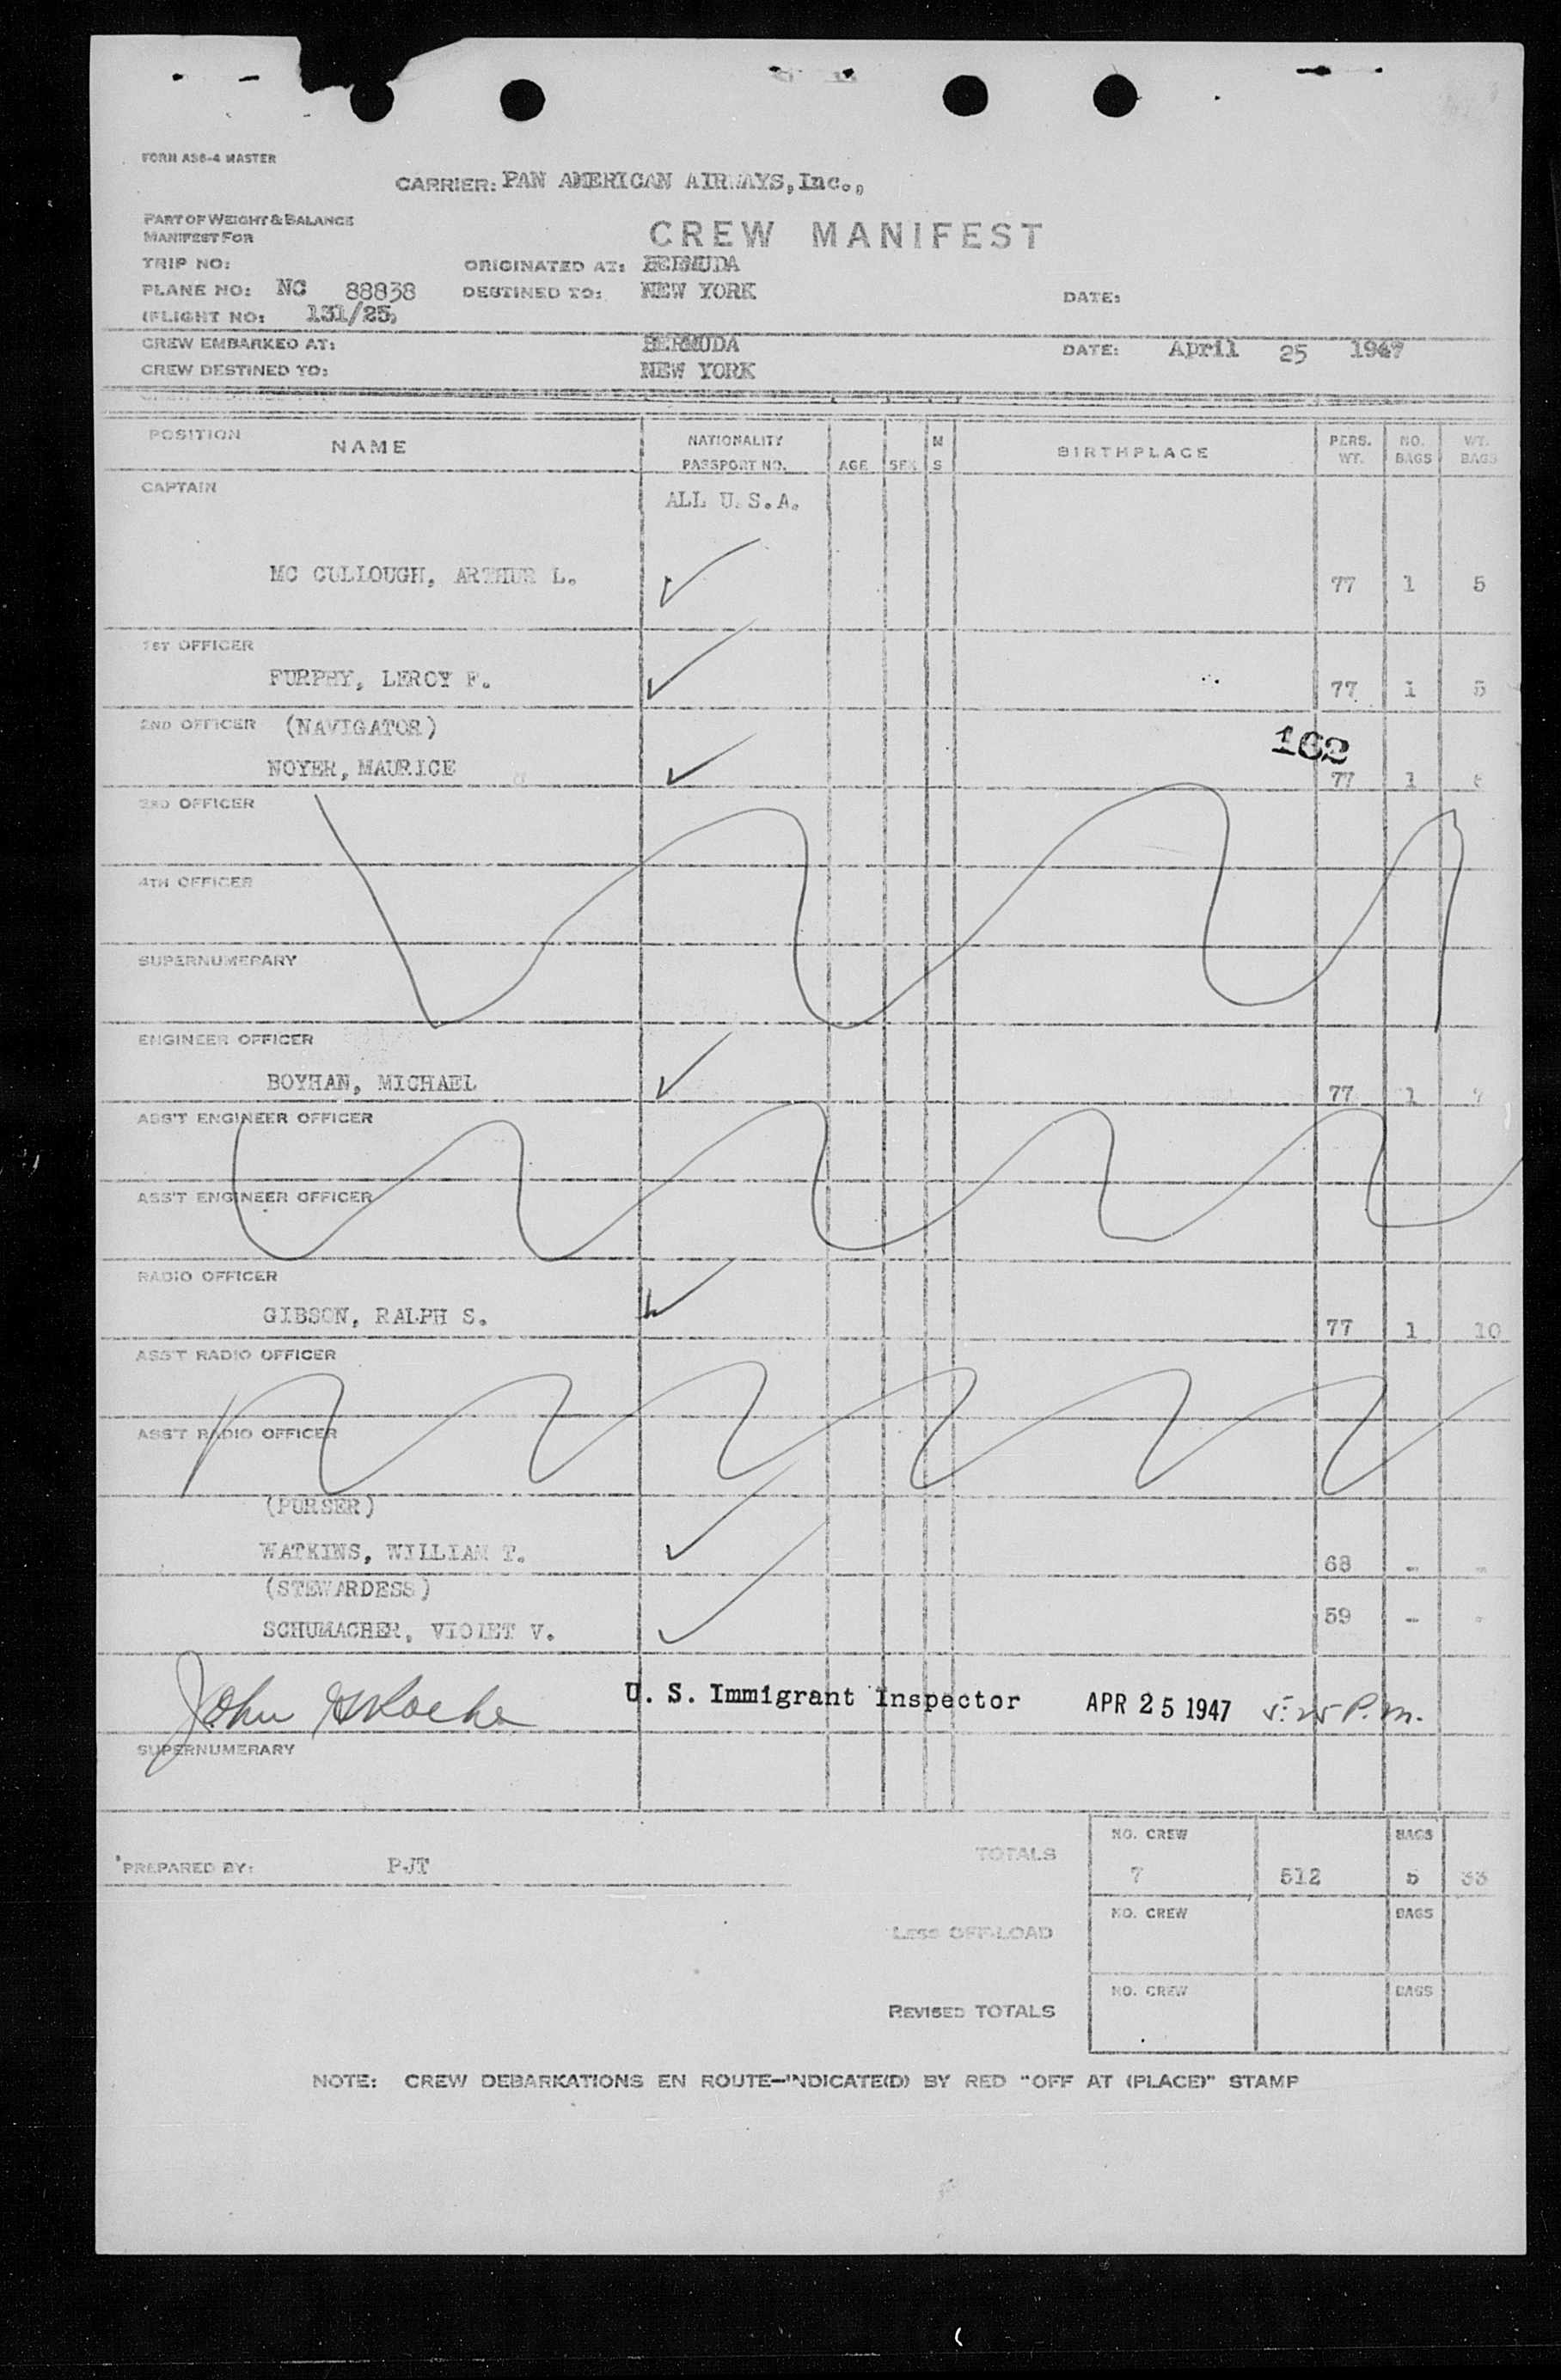 FORM AS6-4 MASTER
CARRIER: PAN AMERICAN AIRWAYS, Inc.,
PART OF WEIGHT & BALANCE
MANIFEST FOR
CREW MANIFEST
TRIP NO: ORIGINATED AT: BERMUDA
PLANE NO: NC 88838 DESTINED TO: NEW YORK DATE:
(FLIGHT NO: 131/25,
CREW EMBARKED AT: BERMUDA DATE: April 25 1947
CREW DESTINED TO: NEW YORK
POSITION NAME NATIONALITY PASSPORT NO. AGE SEX M S BIRTHPLACE PERS. WT. NO. BAGS WT. BAGS
CAPTAIN ALL U.S.A.
MC CULLOUGH, ARTHUR L. 77 1 5
1ST OFFICER
FURPHY, LEROY F. 77 1 5
2ND OFFICER (NAVIGATOR)
162
NOYER, MAURICE 77 1
3RD OFFICER
4TH OFFICER
SUPERNUMERARY
ENGINEER OFFICER
BOYHAN, MICHAEL 77 1 7
ASS'T ENGINEER OFFICER
ASS'T ENGINEER OFFICER
RADIO OFFICER
GIBSON, RALPH S. 77 1 10
ASS'T RADIO OFFICER
ASS'T RADIO OFFICER
(PURSER)
WATKINS, WILLIAM T. 68 - -
(STEWARDESS)
SCHUMACHER, VIOLET V. 59 - -
John U. S. Immigrant Inspector APR 25 1947 5:25 P.M.
SUPERNUMERARY
NO. CREW BAGS
PREPARED BY: PJT TOTALS 7 512 5 33
NO. CREW BAGS
LESS OFF-LOAD
NO. CREW BAGS
REVISED TOTALS
NOTE: CREW DEBARKATIONS EN ROUTE—INDICATE(D) BY RED "OFF AT (PLACE)" STAMP